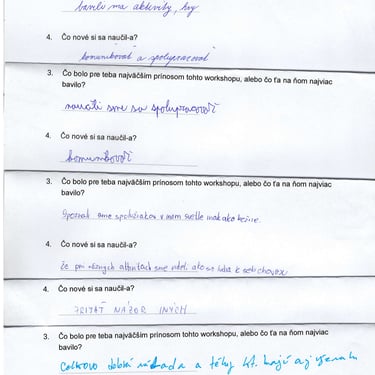 bavili ma aktivity, hry
4. Čo nové si sa naučil-a?
komunikovať a spolupracovať
3. Čo bolo pre teba najväčším prínosom tohto workshopu, alebo čo ťa na ňom najviac
bavilo?
naučili sme sa spolupracovať
4. Čo nové si sa naučil-a?
komunikovať
3. Čo bolo pre teba najväčším prínosom tohto workshopu, alebo čo ťa na ňom najviac
bavilo?
Spoznal sme spolužiakov v inom svetle inak ako bežne.
4. Čo nové si sa naučil-a?
čo pri rôznych aktivitách sme videli, ako sa ľudia k sebe chovajú
4. Čo nové si sa naučil-a?
ZISTIŤ NÁZOR INÝCH
3. Čo bolo pre teba najväčším prínosom tohto workshopu, alebo čo ťa na ňom najviac
bavilo?
Celkovo dobrá nálada a